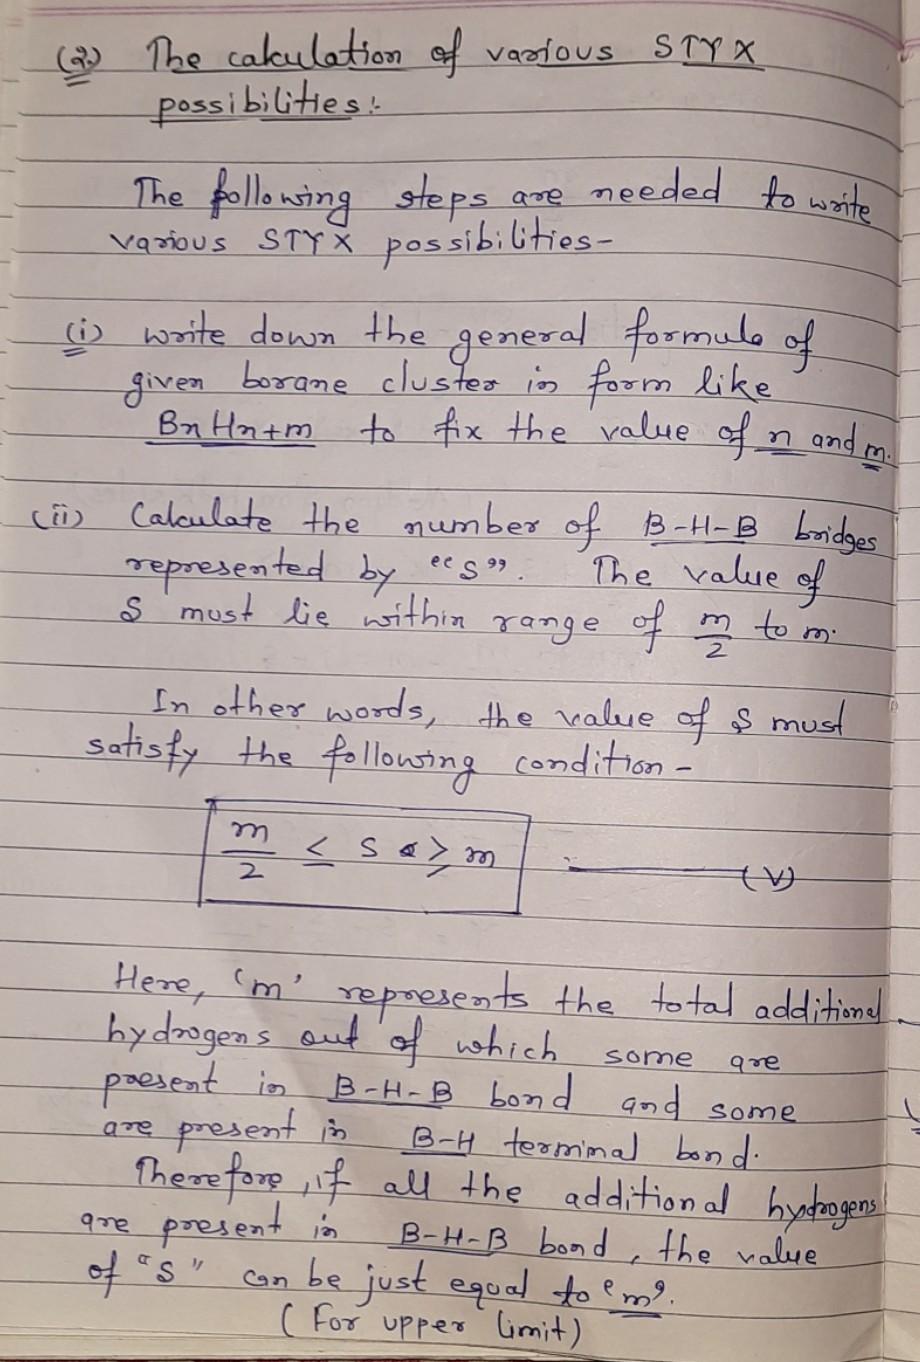 (2) The calculation of various STYX
possibilities:-
The following steps are needed to write
various STYX possibilities-
(i) write down the general formula of
given borane cluster in form like
BnHn+m to fix the value of n and m.
(ii) Calculate the number of B-H-B bridges
represented by "S". The value of
S must lie within range of m/2 to m.
In other words, the value of S must
satisfy the following condition-
m/2 ≤ S ≥ m —(V)
Here, 'm' represents the total additional
hydrogens out of which some are
present in B-H-B bond and some
are present in B-H terminal bond.
Therefore, if all the additional hydrogens
are present in B-H-B bond, the value
of "S" can be just equal to 'm'.
(For upper limit)